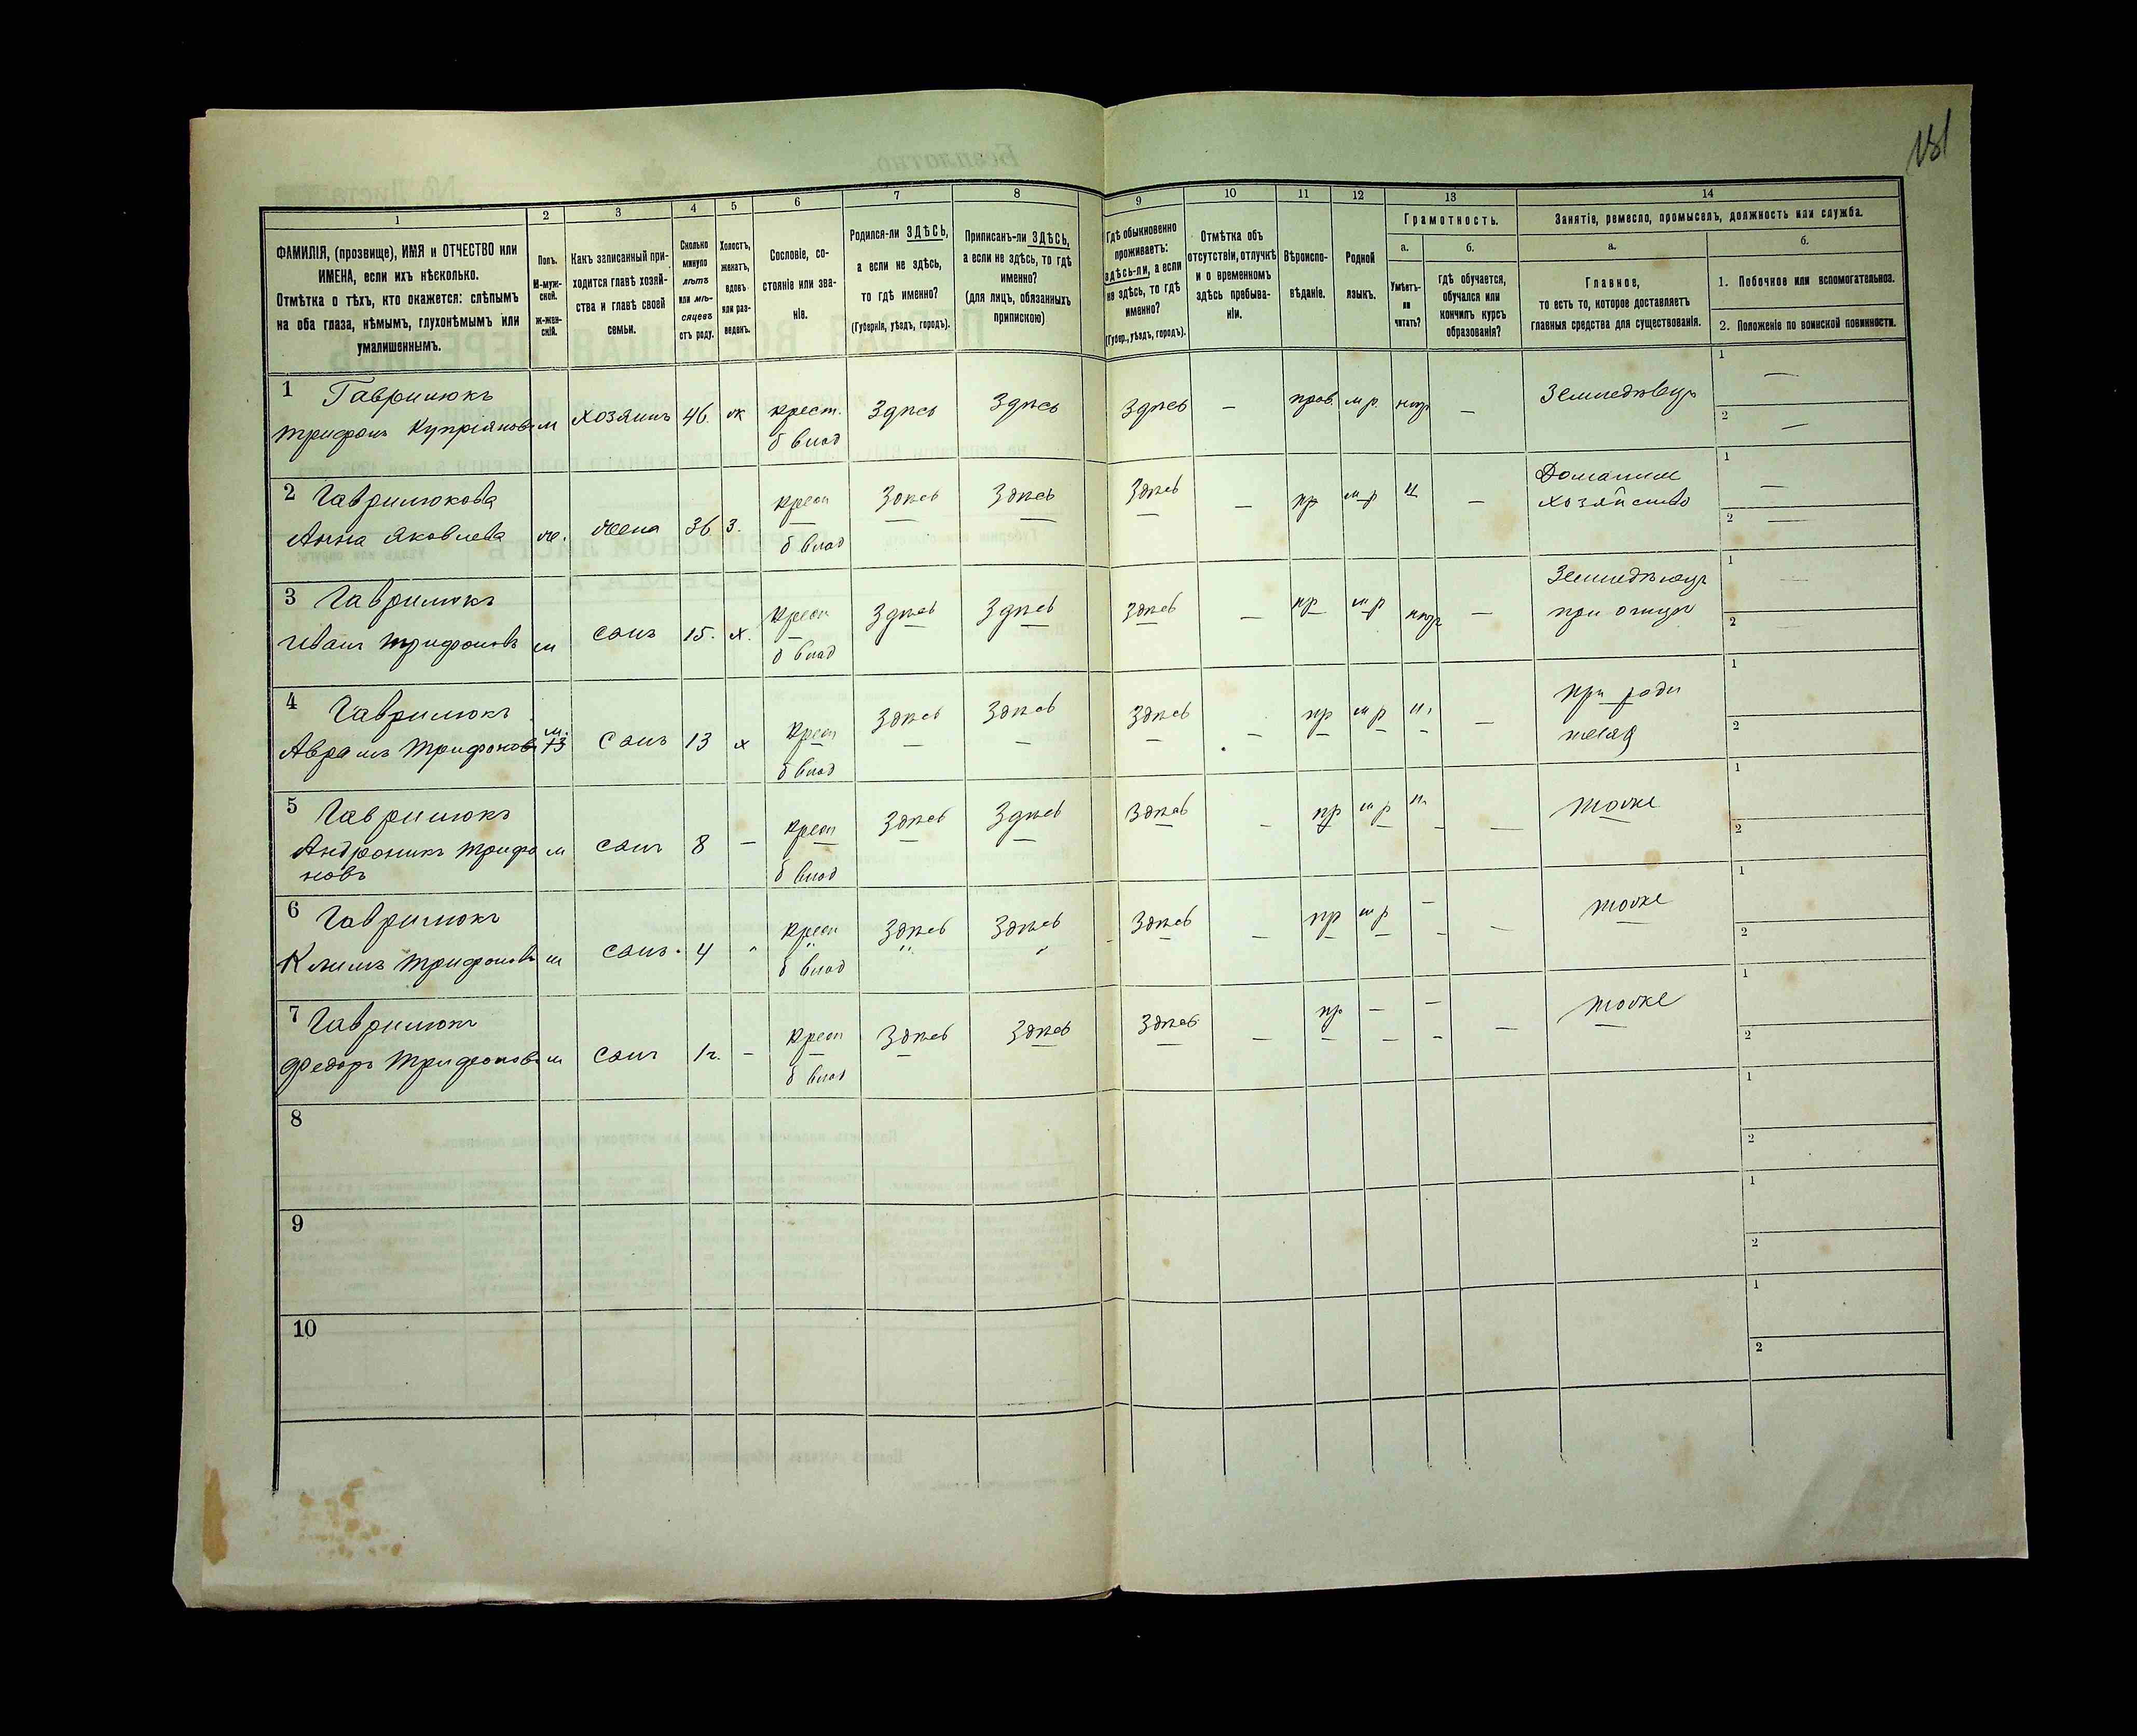 181
1
2
3
4
5
6
7
8
9
10
11
12
13
14
ФАМИЛІЯ, (прозвище), ИМЯ и ОТЧЕСТВО или
ИМЕНА, если ихъ нѣсколько.
Отмѣтка о тѣхъ, кто окажется: слѣпымъ
на оба глаза, нѣмымъ, глухонѣмымъ или
умалишеннымъ.
Полъ.
М-муж-
ской.
ж-жен-
скій.
Какъ записанный при-
ходится главѣ хозяй-
ства и главѣ своей
семьи.
Сколько
минуло
лѣтъ
или мѣ-
сяцевъ
отъ роду.
Холостъ,
женатъ,
вдовъ
или раз-
веденъ.
Сословіе, со-
стояніе или зва-
ніе.
Родился-ли ЗДѢСЬ,
а если не здѣсь,
то гдѣ именно?
(Губернія, уѣздъ, городъ).
Приписанъ-ли ЗДѢСЬ,
а если не здѣсь, то гдѣ
именно?
(для лицъ, обязанныхъ
припискою)
Гдѣ обыкновенно
проживаетъ:
здѣсь-ли, а если
не здѣсь, то гдѣ
именно?
(Губер., уѣздъ, городъ).
Отмѣтка объ
отсутствіи, отлучкѣ
и о временномъ
здѣсь пребыва-
ніи.
Вѣроиспо-
вѣданіе.
Родной
языкъ.
Грамотность.
а.
Умѣетъ-
ли
читать?
б.
Гдѣ обучается,
обучался или
кончилъ курсъ
образованія?
Занятіе, ремесло, промыселъ, должность или служба.
а.
Главное,
то есть то, которое доставляетъ
главныя средства для существованія.
б.
1. Побочное или вспомогательное.
2. Положеніе по воинской повинности.
1 Гаврилюкъ
Трифонъ Купріяновъ м хозяинъ 46. ж крест. Здѣсь Здѣсь Здѣсь — прав. м р. — Земледѣлецъ 1 —
б влад 2 —
2 Гаврилюкова
Анна Яковлева ж. жена 36 з. крест Здѣсь Здѣсь Здѣсь — пр м р н — Домашнее 1 —
б влад хозяйство 2 —
3 Гаврилюкъ
Иванъ Трифоновъ м сынъ 15. х. крест Здѣсь Здѣсь Здѣсь — пр м р — Земледѣлецъ 1 —
б влад при отцѣ 2 —
4 Гаврилюкъ
Аврамъ Трифоновъ м. 13 сынъ 13 х крест Здѣсь Здѣсь Здѣсь — пр м р н — при роди 1
б влад теляхъ 2
5 Гаврилюкъ
Андроникъ Трифо м сынъ 8 — крест Здѣсь Здѣсь Здѣсь — пр м р н — тоже 1
новъ б влад 2
6 Гаврилюкъ
Климъ Трифоновъ м сынъ 4 крест Здѣсь Здѣсь Здѣсь — пр м р — — тоже 1
б влад 2
7 Гаврилюкъ
Федоръ Трифоновъ м сынъ 1 г. — крест Здѣсь Здѣсь Здѣсь — пр — — — тоже 1
б влад 2
8 1
2
9 1
2
10 1
2